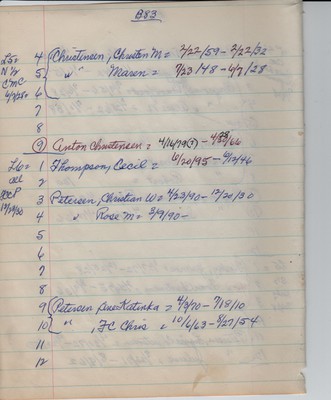 B83
L5= 4 Christensen, Christen M = 2/22/59 - 2/22/32
N½ 5 " Maren = 7/23/48 - 4/7/28
CMC 6
4/9/28=
7
8
9 Anton Christensen = 4/16/79(?) - 4/23/66
L6= 1 Thompson, Cecil = 6/20/95 - 4/12/46
all 2
3 Petersen, Christian W = 4/23/90 - 12/20/30
12/19/30 4 " Rose M = 3/9/90 -
5
6
7
8
9 Petersen Ane Katinka = 4/3/70 - 7/18/10
10 " , J C Chris = 10/6/63 - 8/27/54
11
12